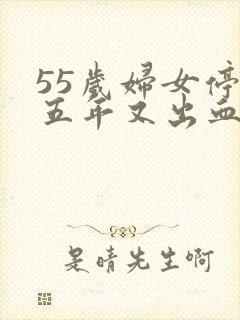 55歲婦女停
五年又出血
是晴先生啊